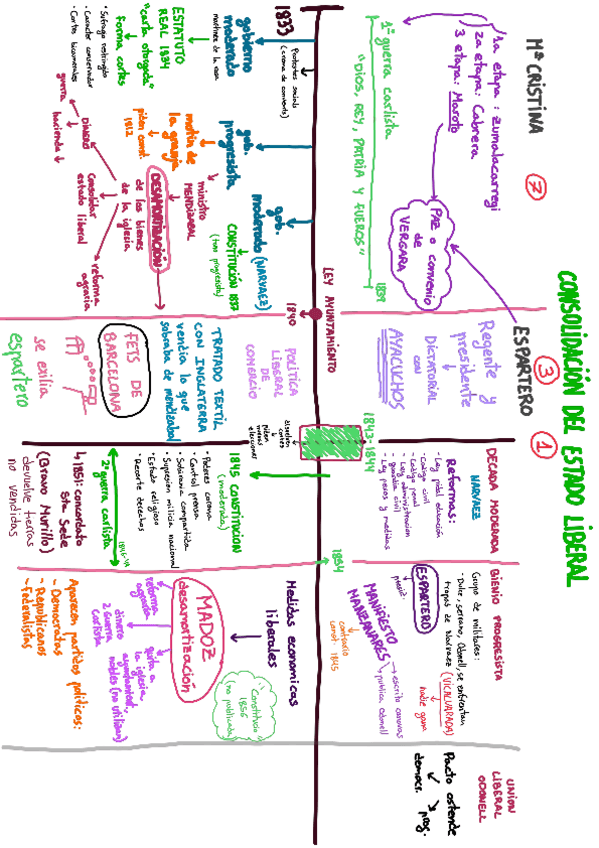 CONSOLIDACIÓN DEL ESTADO LIBERAL
Mª CRISTINA
7
1a etapa: zumalacarregi
2a etapa: Cabrera
3 etapa: Maroto
PAZ o convenio
de
VERGARA
1ª guerra carlista
"DIOS, REY, PATRIA Y FUEROS"
1839
1833
Protestas sociales
(crema de convents)
gobierno
moderado
martinez de la rosa
ESTATUTO
REAL 1834
"carta otorgada"
forma cortes
· Sufragio restringido
· Caracter conservador
· Cortes bicamerales
gob.
progresista
motin de
la granja
piden const.
1812
ministro
MENDIZABAL
DESAMORTIZACIÓN
de los bienes
de la iglesia
DINERO
guerra
hacienda
Consolidar
estado liberal
reforma
agraria
gob.
moderado (NARVAEZ)
CONSTITUCIÓN 1837
(tono progresista)
LEY AYUNTAMIENTO
1840
ESPARTERO
3
Regente y
presidente
DICTATORIAL
con
AYACUCHOS
POLITICA
LIBERAL
DE
COMERCIO
TRATADO TEXTIL
CON INGLATERRA
vendia lo que
sobraba de mendizabal
FETS DE
BARCELONA
se exilia
espartero
1843-1844
disuelven
cortes
piden
nuevas
elecciones
1
DECADA MODERADA
NARVAEZ
Reformas:
· Ley pidal educación
· Código civil
· Código penal
· Ley administracion
· guardia civil
· Ley pesos y medidas
1845 CONSTITUCION
(moderada)
· Poderes corona
· Control prensa
· Soberania compartida
· Supresion milicia nacional
· Estado religioso
· Recorte derechos
2ª guerra carlista
1846-49
1851: concordato
Sta Sede
(Bravo Murillo)
devuelve tierras
no vendidas
1854
BIENIO PROGRESISTA
Grupo de militares:
Dulce, serrano, Odonell, se enfrentan
tropas de Narvaez (VICALVARADA)
nadie gana
ESPARTERO
presid.
MANIFIESTO
MANZANARES
escrito canovas
publica Odonell
contrario
const. 1845
Medidas economicas
liberales
MADOZ
desamortización
"Constitució"
1856
(no publicada)
reforma
agraria
dinero
2 guerra
carlista
quita a
la iglesia,
ayuntamient.
nobles (no utilizan)
Aparecen partidos politicos:
- Democratas
- Republicanos
- federalistas
UNION
LIBERAL
ODONELL
Pacto ostende
democr. prog.